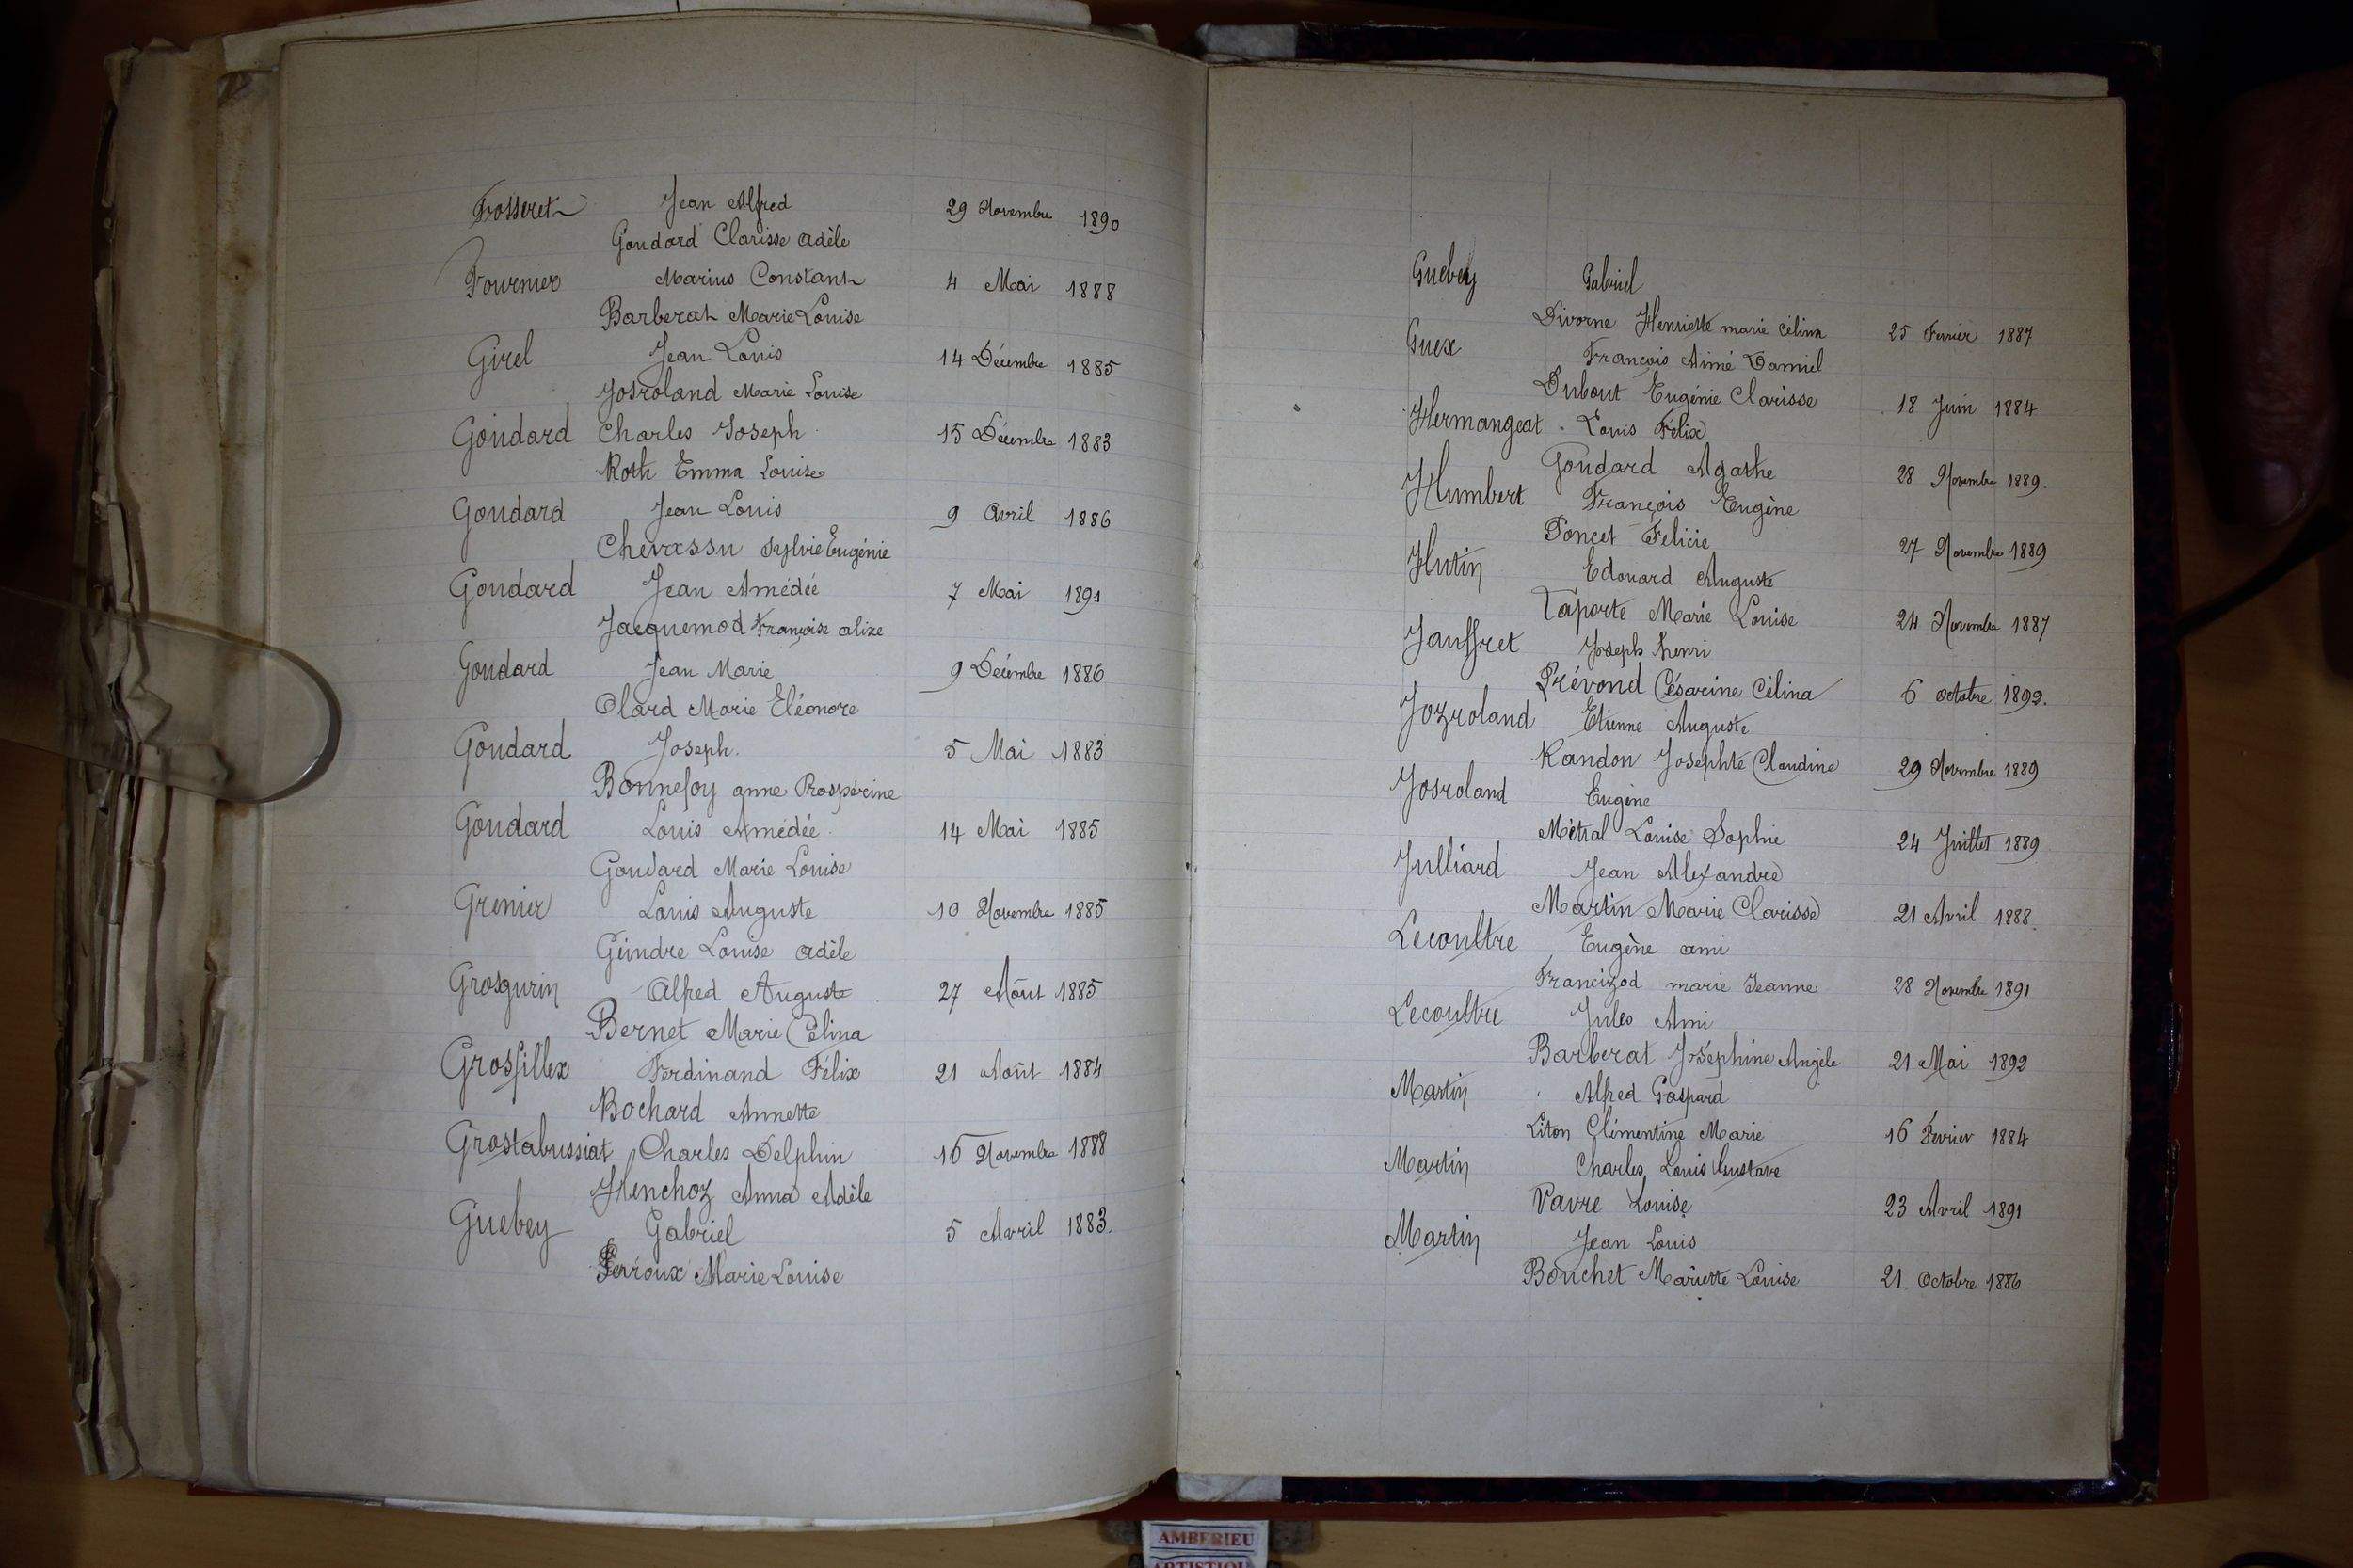 Fosseret Jean Alfred 29 Novembre 1890
Goudard Clarisse Adèle
Fournier Marius Constant 4 Mai 1888
Barberat Marie Louise
Girel Jean Louis 14 Décembre 1885
Josroland Marie Louise
Goudard Charles Joseph 15 Décembre 1883
Roth Emma Louise
Goudard Jean Louis 9 Avril 1886
Chevassu Sylvie Eugénie
Goudard Jean Amédée 7 Mai 1891
Jacquemod Françoise alixe
Goudard Jean Marie 9 Décembre 1886
Olard Marie Eléonore
Goudard Joseph. 5 Mai 1883
Bonnefoy anne Prospérine
Goudard Louis Amédée. 14 Mai 1885
Goudard Marie Louise
Grenier Louis Auguste 10 Novembre 1885
Geindre Louise Adèle
Grosgurin Alfred Auguste 27 Août 1885
Bernet Marie Célina
Grosfillex Ferdinand Félix 21 Août 1884
Bochard Annette
Grostabussiat Charles Delphin 16 Novembre 1888
Henchoz Anna Adèle
Guebey Gabriel 5 Avril 1883.
Perroux Marie Louise
Guebey Gabriel
Divorne Henriette marie célina 25 Fevrier 1887
Guex François Aimé Damiel
Dubout Eugénie Clarisse 18 Juin 1884
Hermangeat Louis Félix
Goudard Agathe 28 Novembre 1889.
Humbert François Eugène
Poncet Félicie 27 Novembre 1889
Hutin Edouard Auguste
Laporte Marie Louise 24 Novembre 1887
Jauffret Joseph henri
Prévond Césarine Célina 6 octobre 1892.
Jozroland Etienne Auguste
Randon Josephte Claudine 29 Novembre 1889
Josroland Eugène
Métral Louise Sophie 24 Juillet 1889
Julliard Jean Alexandre
Martin Marie Clarisse 21 Avril 1888.
Lecoultre Eugène ami
Francizod marie Jeanne 28 Novembre 1891
Lecoultre Jules Ami
Barberat Joséphine Angèle 21 Mai 1892
Martin Alfred Gaspard
Liton Clémentine Marie 16 Fevrier 1884
Martin Charles Louis Gustave
Pavre Louise 23 Avril 1891
Martin Jean Louis
Bouchet Mariette Louise 21 Octobre 1886
AMBERIEU
ARTISTIQU